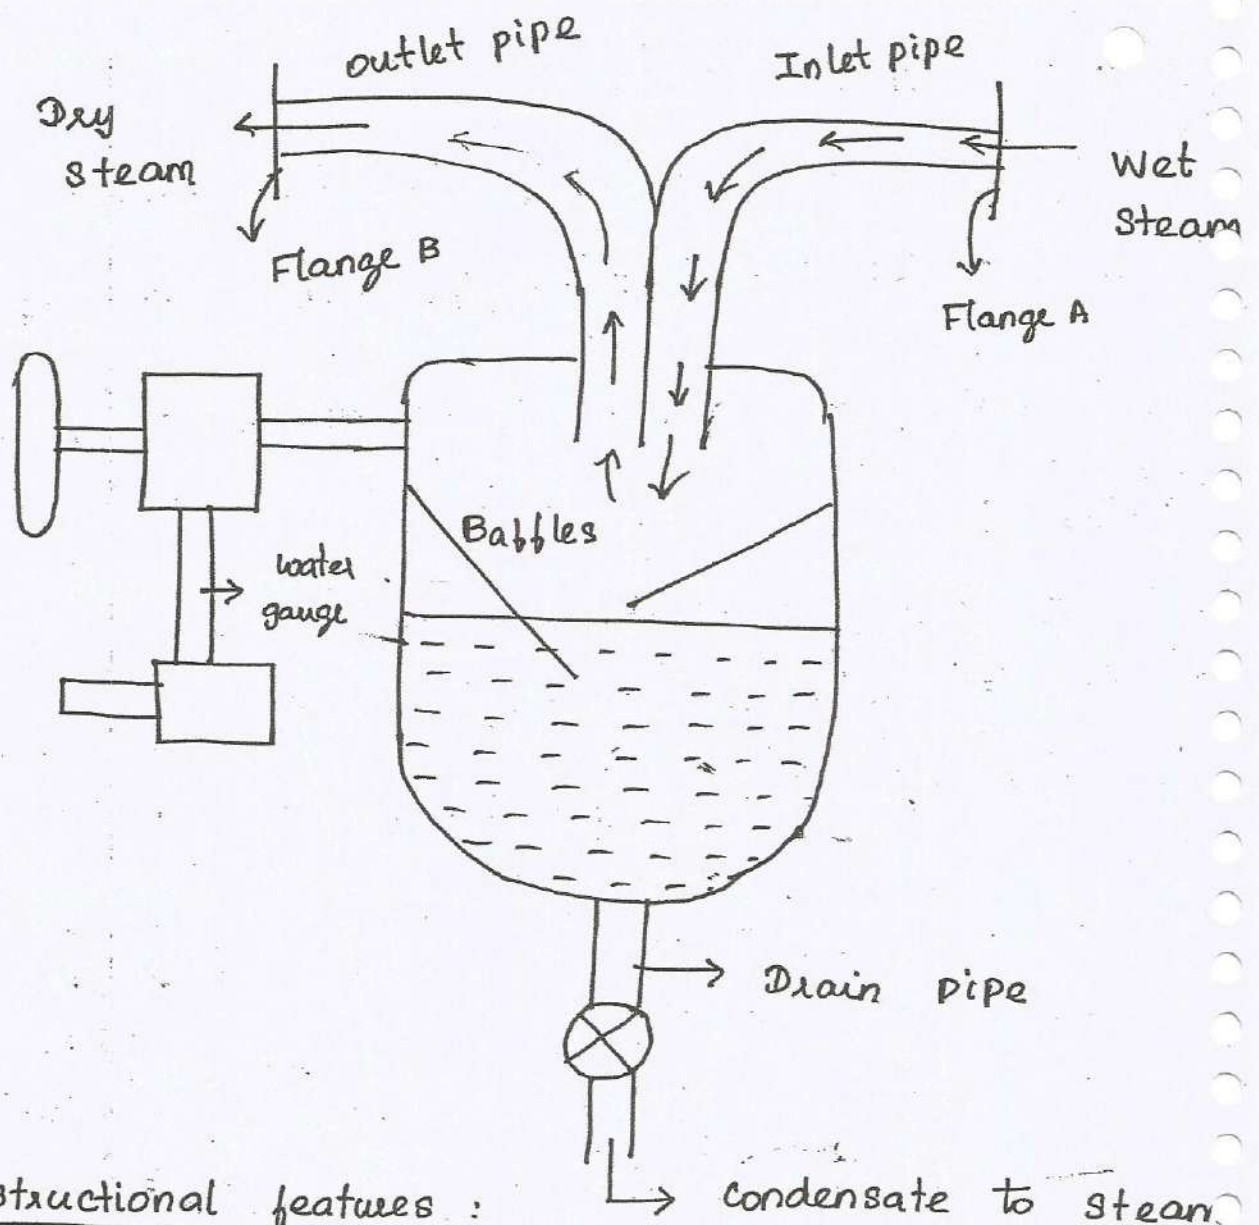 outlet pipe
Inlet pipe
Dry
steam
Wet
Steam
Flange B
Flange A
Baffles
water
gauge
Drain pipe
structional features :
condensate to steam